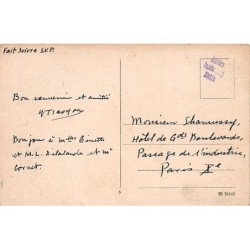 Fait Suivre S.V.P.
Bon souvenir et amitié
Bonjour à Mlles Ginette
et M.L. Delalande et Mr
Cornet.
Monsieur Shamussy,
Hôtel de Gds Boulevards,
Passage de l'industrie,
Paris Xe